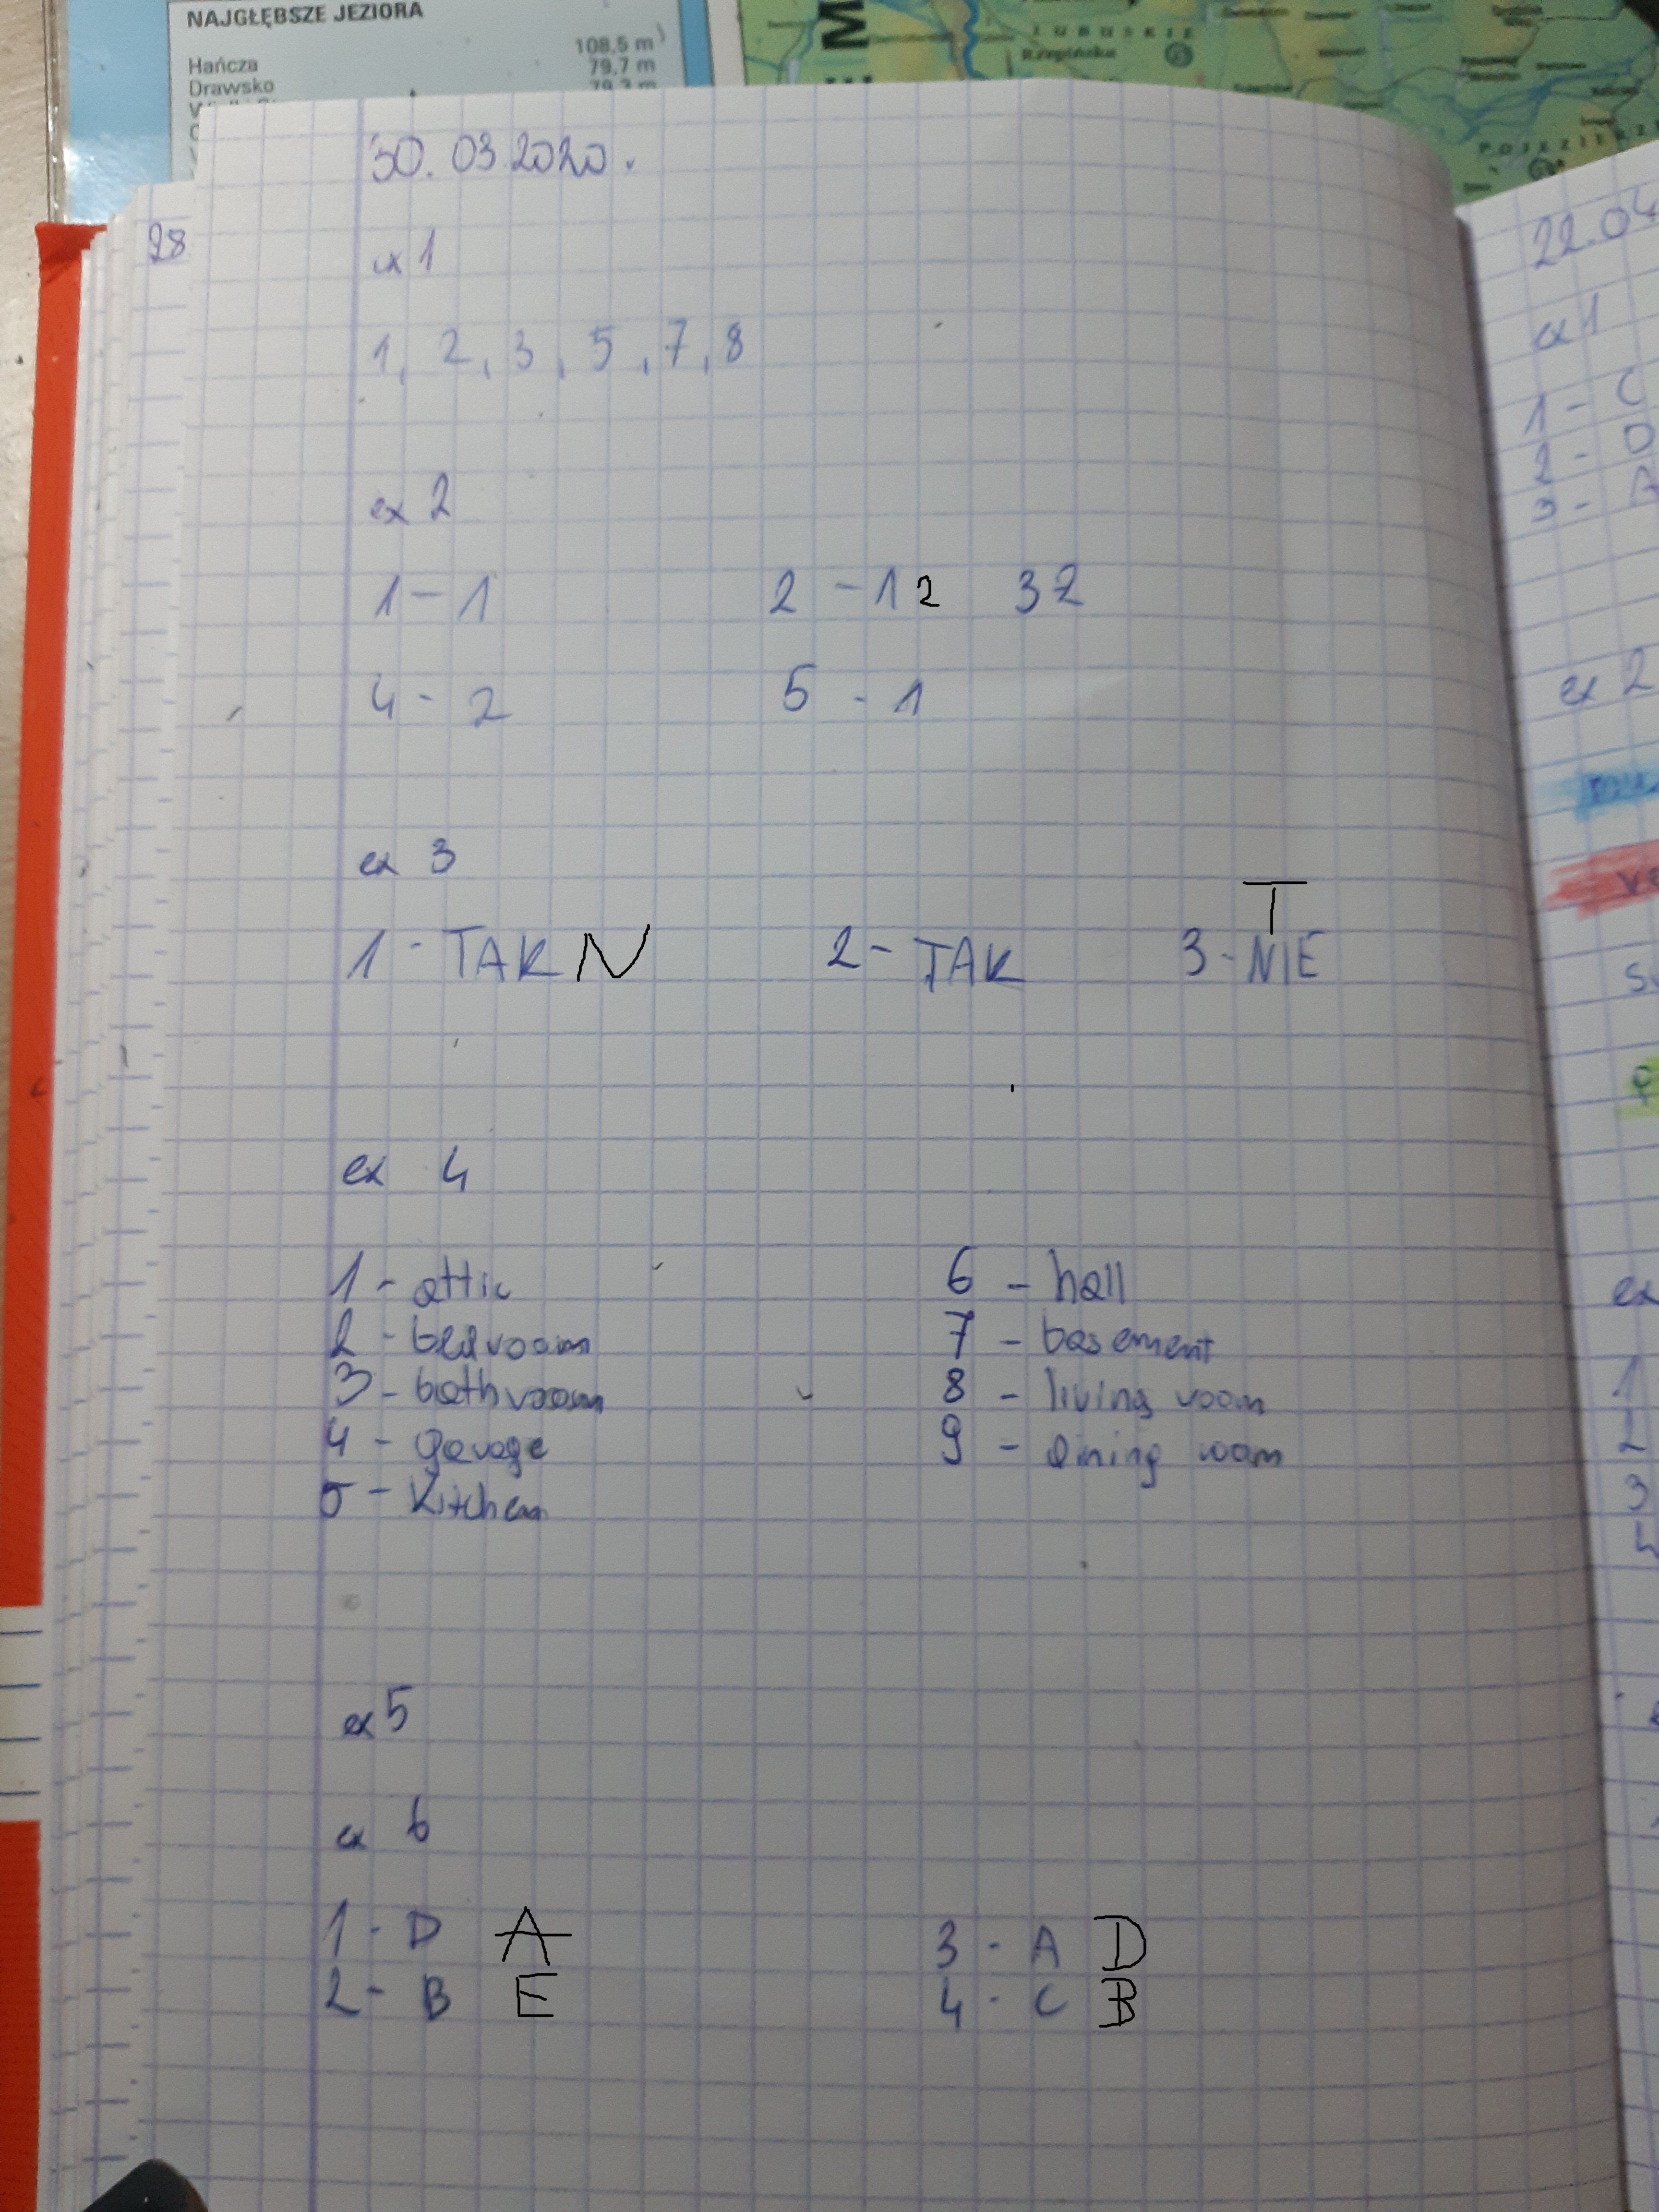 NAJGŁĘBSZE JEZIORA
108,5 m
Hańcza 79,7 m
Drawsko 79,3 m
M
LUBUSKIE
Rzepińska
POJEZIERZ
30.03.2020.
28
ex 1
1, 2, 3, 5, 7, 8
ex 2
1-1 2 - 1 2 32
4 - 2 5 - 1
ex 3
T
1 - TAK N 2 - TAK 3 - NIE
ex 4
1 - attic 6 - hall
2 - bedroom 7 - basement
3 - bathroom 8 - living room
4 - garage 9 - dining room
5 - kitchen
ex 5
ex 6
1 - D A 3 - A D
2 - B E 4 - C B
22.04
ex 1
1 - C
2 - D
3 - A
ex 2
ex
1
2
3